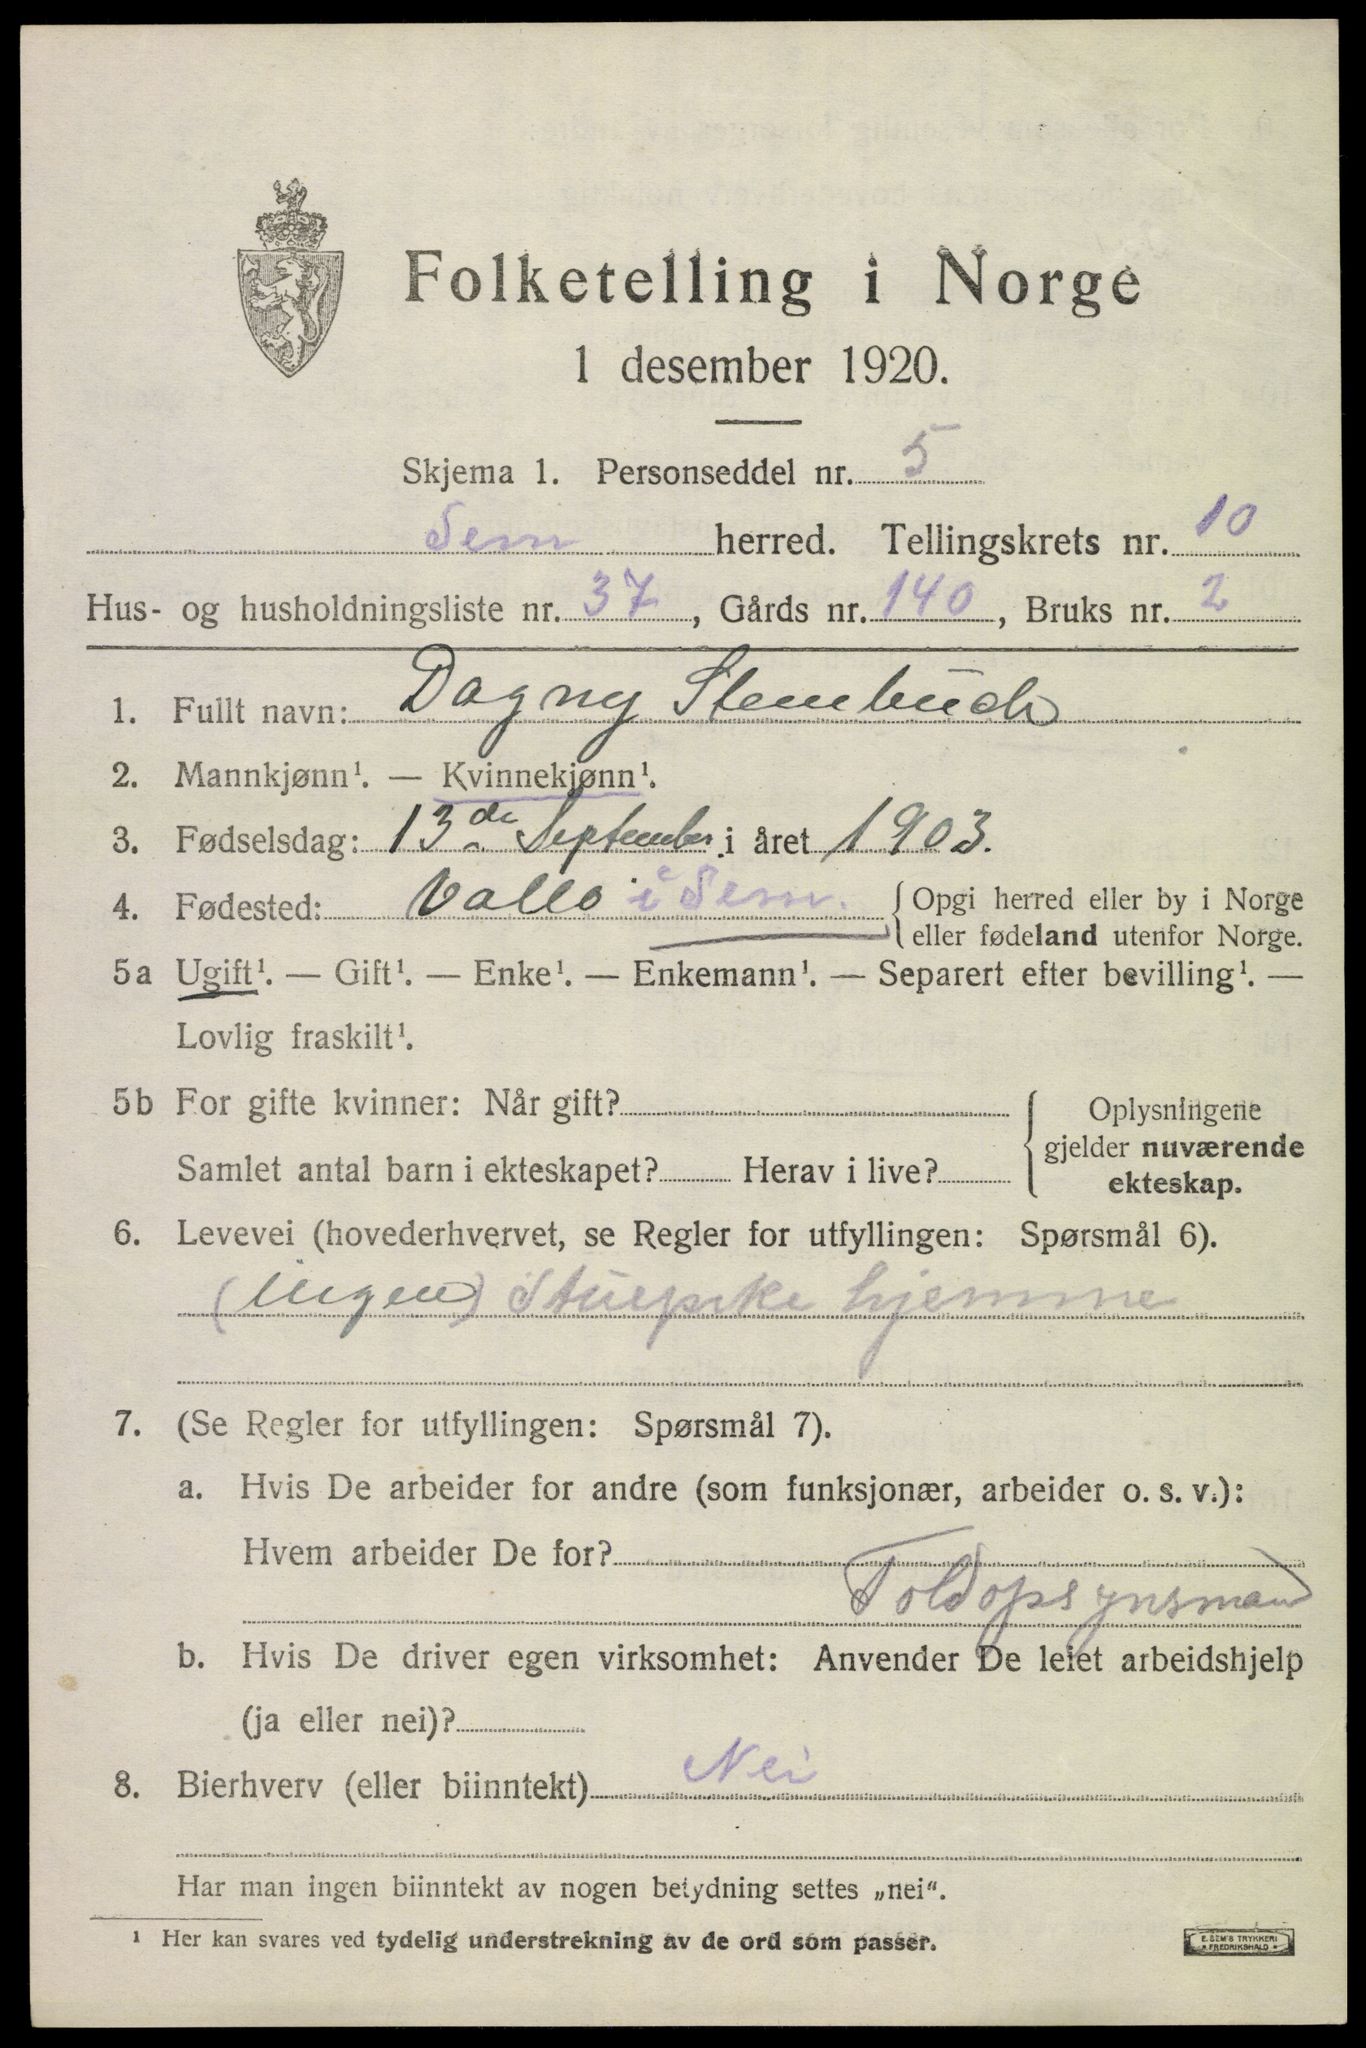 Folketelling i Norge
1 desember 1920.
Skjema 1. Personseddel nr. 5
Sem herred. Tellingskrets nr. 10
Hus- og husholdningsliste nr. 37, Gårds nr. 140, Bruks nr. 2
1. Fullt navn: Dagny Stembüch
2. Mannkjønn¹. — Kvinnekjønn¹.
3. Fødselsdag: 13de September i året 1903.
4. Fødested: Vallø i Sem. { Opgi herred eller by i Norge
eller fødeland utenfor Norge.
5a Ugift¹. — Gift¹. — Enke¹. — Enkemann¹. — Separert efter bevilling¹. —
Lovlig fraskilt¹.
5b For gifte kvinner: Når gift?
Samlet antal barn i ekteskapet? Herav i live?
{ Oplysningene
gjelder nuværende
ekteskap.
6. Levevei (hovederhvervet, se Regler for utfyllingen: Spørsmål 6).
(Ingen) Stuepike hjemme
7. (Se Regler for utfyllingen: Spørsmål 7).
a. Hvis De arbeider for andre (som funksjonær, arbeider o. s. v.):
Hvem arbeider De for?
Toldopsynsmand
b. Hvis De driver egen virksomhet: Anvender De leiet arbeidshjelp
(ja eller nei)?
8. Bierhverv (eller biinntekt) Nei
Har man ingen biinntekt av nogen betydning settes „nei".
¹ Her kan svares ved tydelig understrekning av de ord som passer.
E. SEM'S TRYKKERI
FREDRIKSHALD